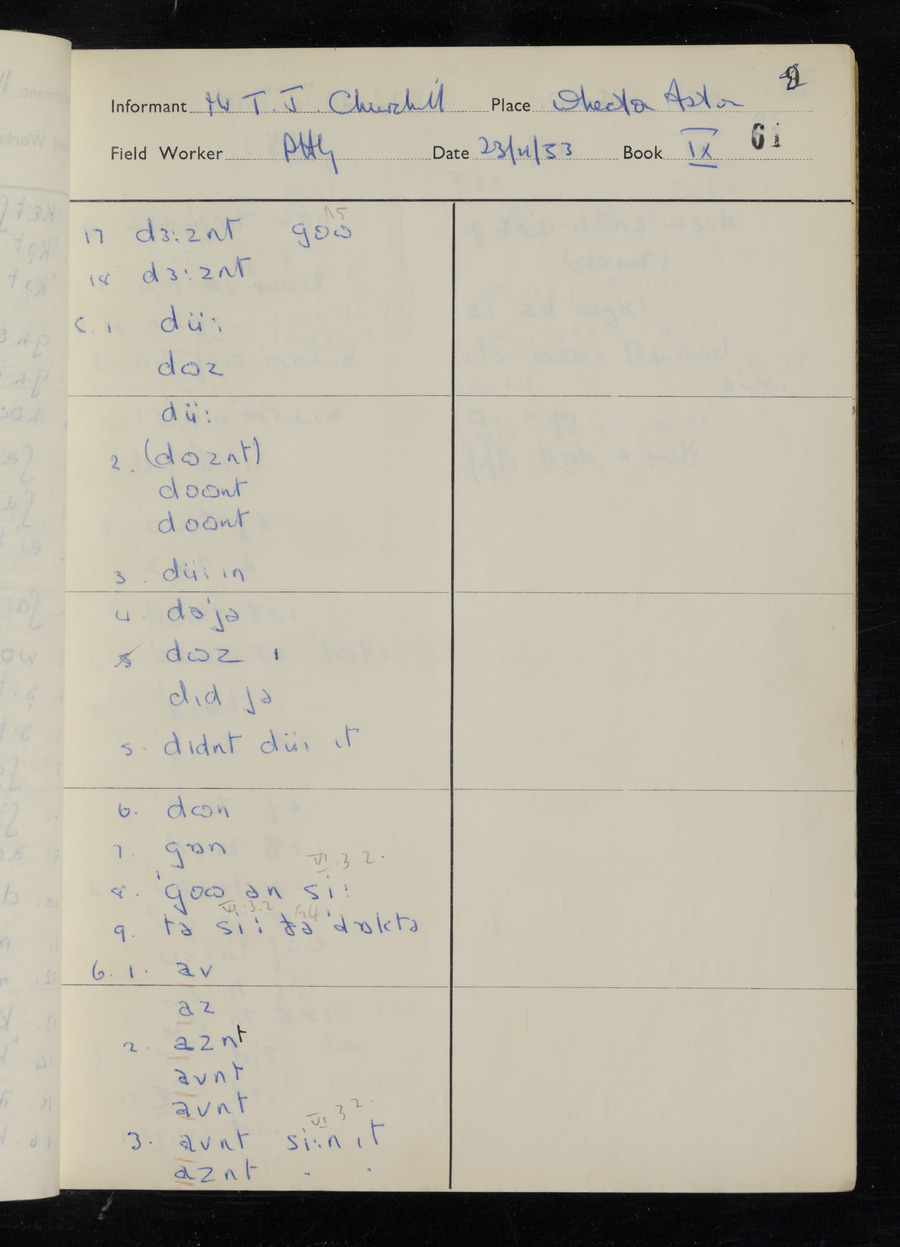 9
Informant T. J. Churchill Place Wheaton Aston
Field Worker PHG Date 23/11/53 Book IX 61
17 dɜːznt goɷ
18 dɜːznt
5. 1 düː
dɷz
düː
2. (dɷznt)
doɷnt
doɷnt
3. düːɪn
4. dəˈjə
5 dɷz ɪ
dɪd jə
5. dɪdnt düː ɪt
6. dɷn
7. gɒn
8. ˈgoɷ ən siː VI.3.2.
9. tə siː ðə ˈdɒktə VI.3.2
6. 1. av
az
2. aznt
avnt
avnt
3. avnt siːn ɪt VI.3.2.
aznt . .